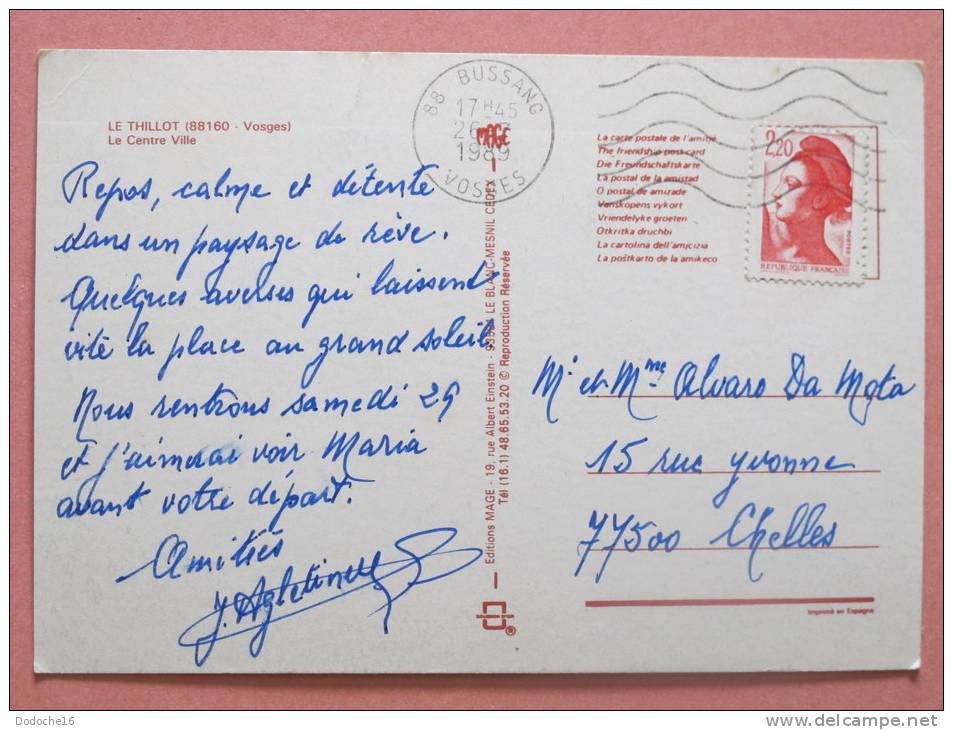 LE THILLOT (88160 - Vosges)
Le Centre Ville
Repos, calme et détente
dans un paysage de rêve.
Quelques averses qui laissent
vite la place au grand soleil.
Nous rentrons samedi 29
et j'aimerai voir Maria
avant votre départ.
Amitiés
88 BUSSANG
17H45
26
1989
VOSGES
MAGE
Editions MAGE - 19, rue Albert Einstein - LE BLANC-MESNIL CEDEX
Tél (16.1) 48.65.53.20 © Reproduction Réservée
®
La carte postale de l'amitié
The friendship post card
Die Freundschaftskarte
La postal de la amistad
O postal de amizade
Vanskopens vykort
Vriendelyke groeten
Otkritka druchbi
La cartolina dell'amicizia
La poŝtkarto de la amikeco
2,20
POSTES
REPUBLIQUE FRANCAISE
Mr et Mme Alvaro Da Mota
15 rue yvonne
77500 Chelles
Imprimé en Espagne
Dodoche16
www.delcampe.net